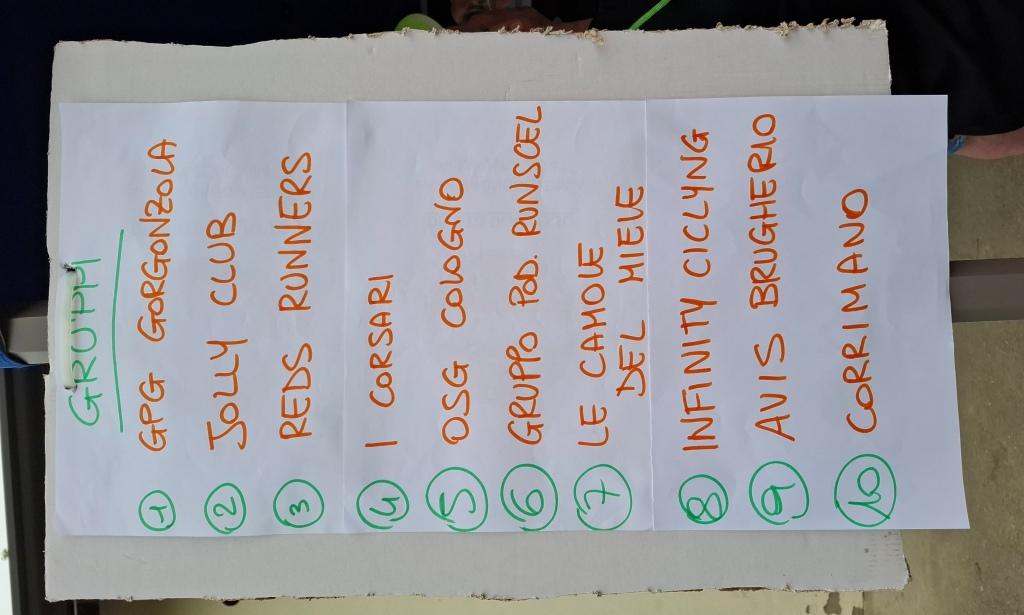 GRUPPI
1 GPG GORGONZOLA
2 JOLLY CLUB
3 REDS RUNNERS
4 I CORSARI
5 OSG COLOGNO
6 GRUPPO POD. RUNSCEL
7 LE CAMOLE
DEL MIELE
8 INFINITY CICLYNG
9 AVIS BRUGHERIO
10 CORRIMANO